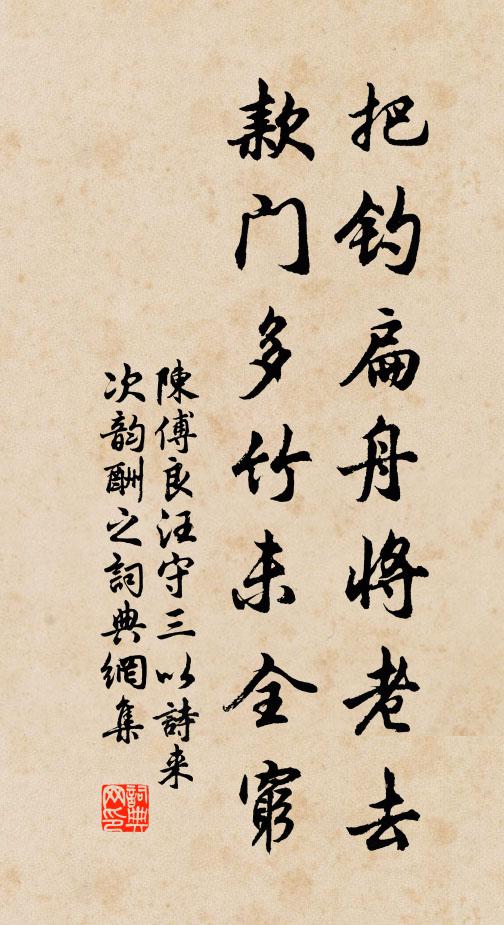 把钓扁舟将老去
款门多竹未全窮
陳傅良汪守三以詩来
次韵酬之詞典網集
詞典网印